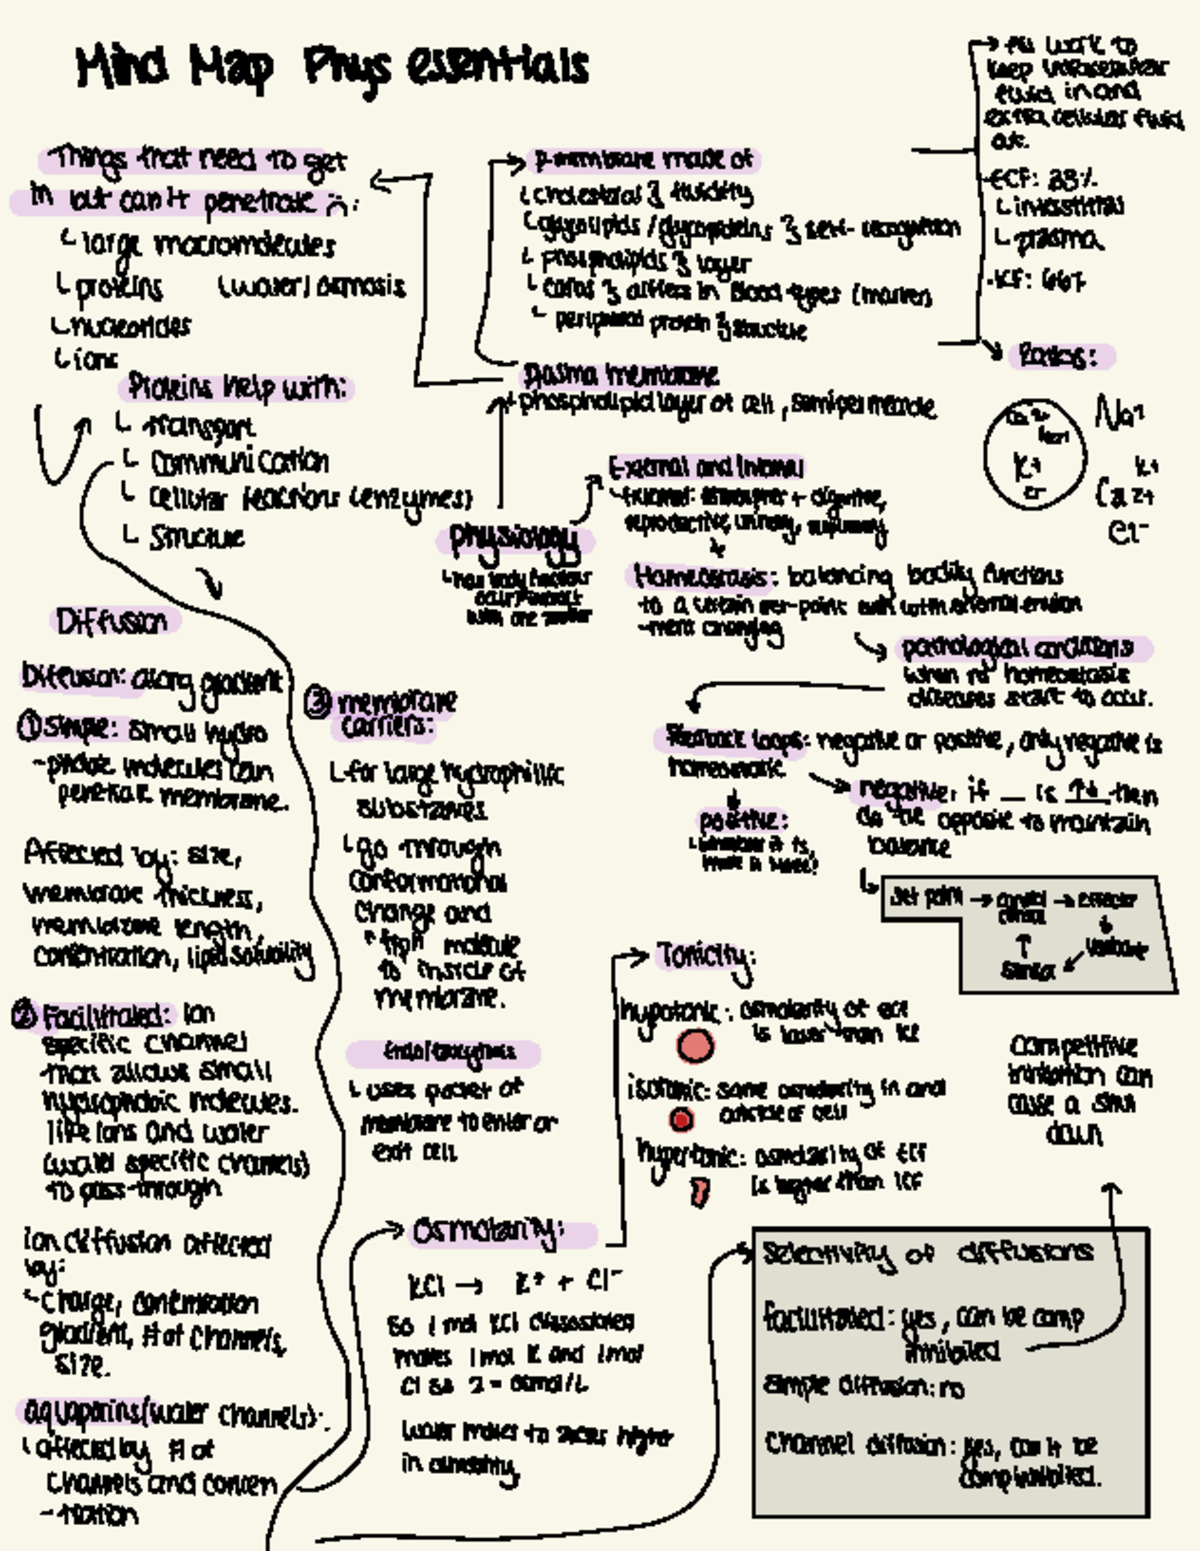 Mind Map Phys essentials
Things that need to get
in but can't penetrate
large macromolecules
proteins
(water/osmosis
nucleotides
ions
Proteins help with:
transport
communication
cellular reactions (enzymes)
structure
p-membrane made of
cholesterol } fluidity
glycolipids / glycoproteins } self-recognition
phospholipids } layer
carbs } differs in blood types (marker)
peripheral protein } structure
plasma membrane
phospholipid layer of cell, semipermeable
All work to
keep intracellular
fluid in and
extra cellular fluid
out.
ECF: 33%
interstitial
plasma
ICF: 67%
Na+
K+
Ca2+
Cl-
K+
External and Internal
reproductive, urinary,
Physiology
how body functions
with one another
Homeostasis: balancing bodily functions
to a certain set-point even with external environ
-ment changing
pathological conditions
when no homeostasis
diseases start to occur.
Feedback loops: negative or positive, only negative is
homeostatic
negative: if __ is ↑↓ then
do the opposite to maintain
balance
positive:
whatever it is,
make it more!
set point → control center → effector
variable
sensor
Diffusion
Diffusion: along gradient
① Simple: small hydro
-phobic molecules can
penetrate membrane.
Affected by: size,
membrane thickness,
membrane length,
concentration, lipid solubility
② Facilitated: Ion
specific channel
that allows small
hydrophobic molecules.
like ions and water
(water specific channels)
to pass-through
ion diffusion affected
by:
charge, concentration
gradient, # of channels,
size.
aquaporins(water channels):
affected by # of
channels and concen
-tration
③ membrane
carriers:
for large hydrophillic
substances
go through
conformational
change and
"flip" molecule
to inside of
membrane.
Endo/exocytosis
uses pocket of
membrane to enter or
exit cell
Osmolarity:
KCl → K+ + Cl-
so 1 mol KCl dissociated
makes 1mol K and 1mol
Cl so 2 = osmol/L
water moves to areas higher
in osmolarity
Tonicity:
hypotonic: osmolarity of ECF
is lower than ICF
isotonic: same osmolarity in and
outside of cell
hypertonic: osmolarity of ECF
is higher than ICF
competitive
inhibition can
cause a shut
down
Selectivity of diffusions
facilitated: yes, can be comp
inhibited
simple diffusion: no
channel diffusion: yes, can't be
comp inhibited.